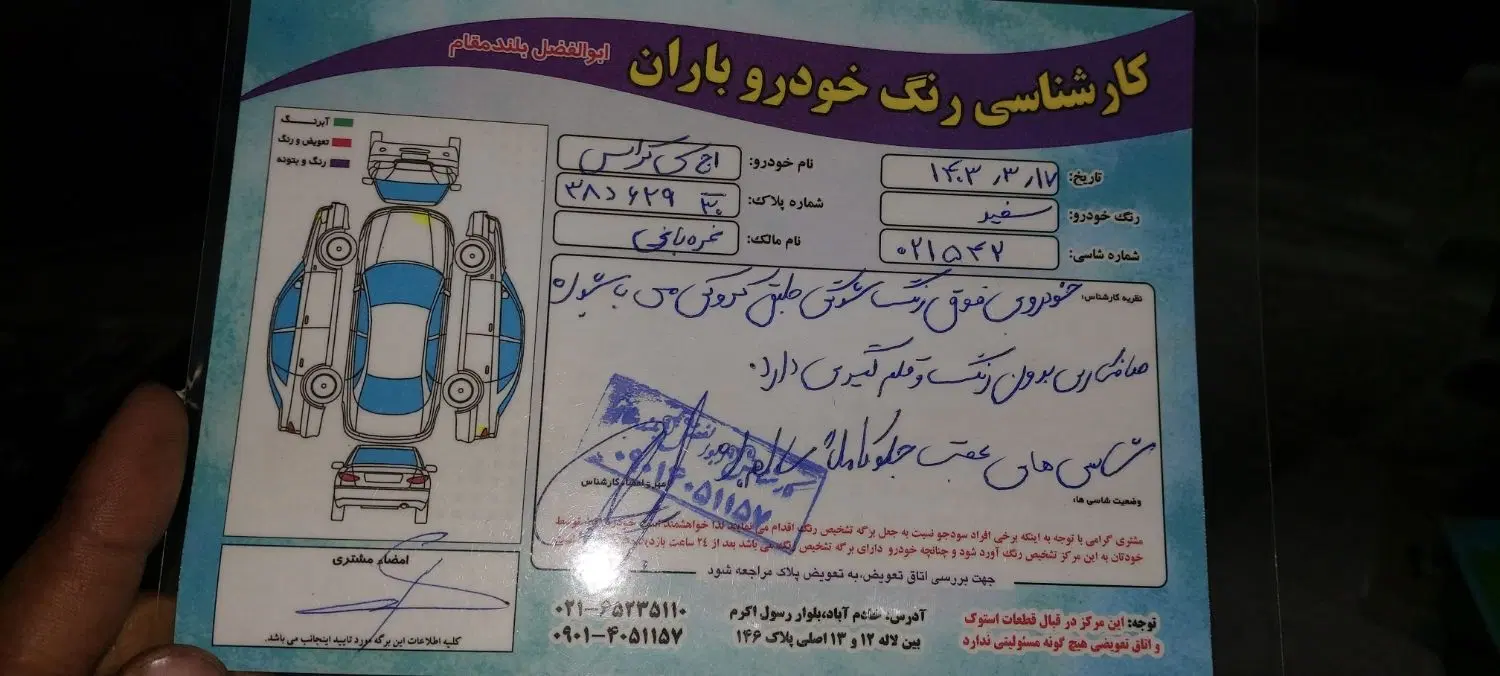 کارشناسی رنگ خودرو باران
ابوالفضل بلندمقام
تاریخ: ۱۴۰۳٫۳٫۱۷
رنگ خودرو: سفید
شماره شاسی: ۰۲۱۵۴۲
نام خودرو: اچ سی کراس
شماره پلاک: ۳۸ د ۶۲۹ ۳۰
نام مالک:
آبرنگ
تعویض و رنگ
رنگ و بتونه
نظریه کارشناس: خودروی فوق رنگ شوتی طبق کروکی می باشد
صافکاری بدون رنگ و قلم گیری دارد.
شاسی های عقب جلو کاملا سالم
وضعیت شاسی ها:
مهر و امضاء کارشناس
۰۹۰۱۴۰۵۱۱۵۷
مشتری گرامی با توجه به اینکه برخی افراد سودجو نسبت به جعل برگه تشخیص رنگ اقدام می نمایند لذا خواهشمند است توسط
خودتان به این مرکز تشخیص رنگ آورد شود و چنانچه خودرو دارای برگه تشخیص رنگ می باشد بعد از ۲۴ ساعت
جهت بررسی اتاق تعویض،به تعویض پلاک مراجعه شود
امضاء مشتری
کلیه اطلاعات این برگه مورد تایید اینجانب می باشد.
توجه: این مرکز در قبال قطعات استوک
و اتاق تعویضی هیچ گونه مسئولیتی ندارد
آدرس: خادم آباد،بلوار رسول اکرم
بین لاله ۱۲ و ۱۳ اصلی پلاک ۱۴۶
۰۲۱-۶۵۲۳۵۱۱۰
۰۹۰۱-۴۰۵۱۱۵۷